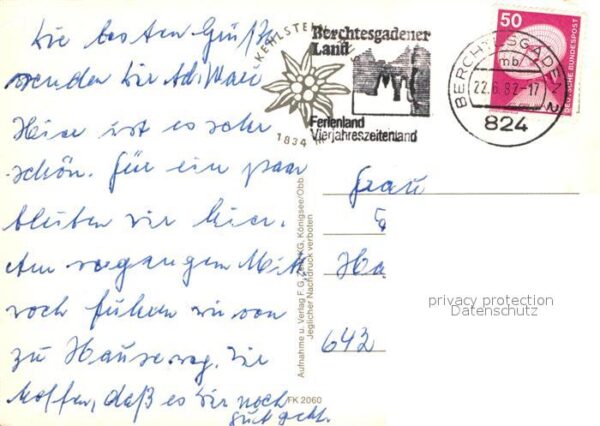 Die besten Grüße
senden Dir
Hier ist es sehr
schön. Für ein paar
bleiben wir hier.
Am vergangenen Mitt
woch fuhren wir von
zu Hause weg. Wir
hoffen, daß es Dir noch
gut geht.
KEHLSTEIN
1834 m
Berchtesgadener
Land
Ferienland
Vierjahreszeitenland
50
DEUTSCHE BUNDESPOST
BERCHTESGADEN 2
mb
22.6.82-17
824
Aufnahme u. Verlag F. G. KG, Königsee/Obb
Jeglicher Nachdruck verboten
FK 2060
Frau
Ha
643
privacy protection
Datenschutz